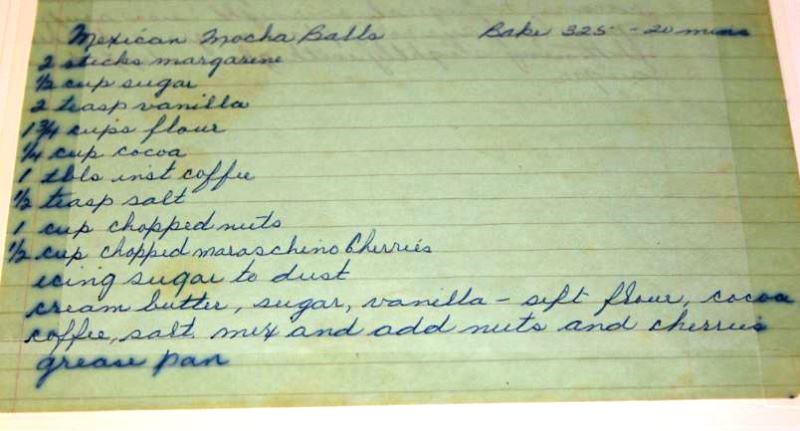 Mexican Mocha Balls Bake 325° - 20 mins
2 sticks margarine
1/2 cup sugar
2 teasp vanilla
1 3/4 cups flour
1/4 cup cocoa
1 tbls inst coffee
1/2 teasp salt
1 cup chopped nuts
1/2 cup chopped maraschino Cherries
icing sugar to dust
cream butter, sugar, vanilla - sift flour, cocoa
coffee, salt mix and add nuts and cherries
grease pan